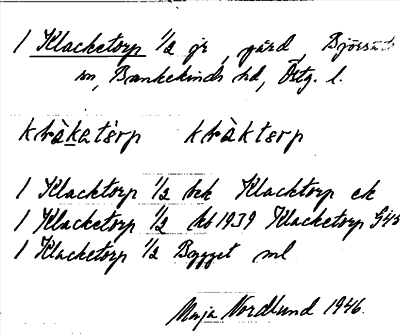 1 Klacketorp 1/2 jr, gård, Björsäters
sn, Bankekinds hd, Östg. l.
kràkatòrp kràktorp
1 Klacktorp 1/2 hek Klacktorp ek
1 Klacketorp 1/2 kb 1939 Klacketorp G45
1 Klacketorp 1/2 Bygget ml
Maja Nordlund 1946.